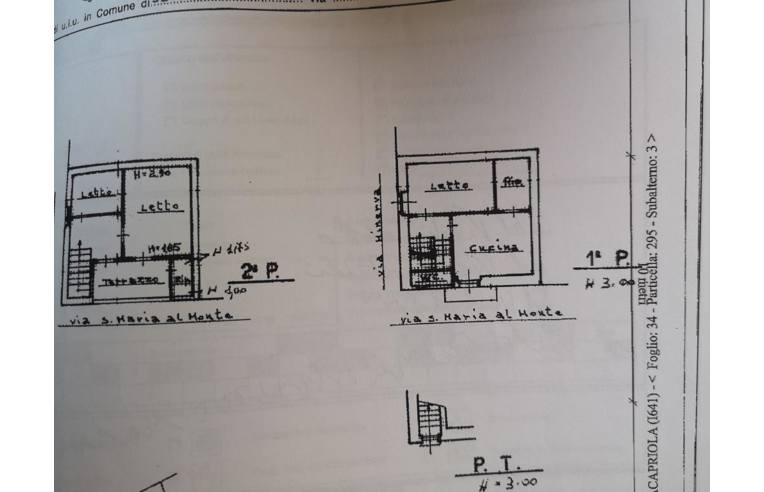 di u.i.u. in Comune di
via
H=2,90
Letto
Letto
H=1,85
H 1,75
Terrazzo
Rip
H 1,00
2° P.
via S. Maria al Monte
via Minerva
Letto
Cucina
W.C.
1° P.
H 3.00
via S. Maria al Monte
P. T.
H = 3.00
10 metri
CAPRIOLA (I641) - < Foglio: 34 - Particella: 295 - Subalterno: 3 >